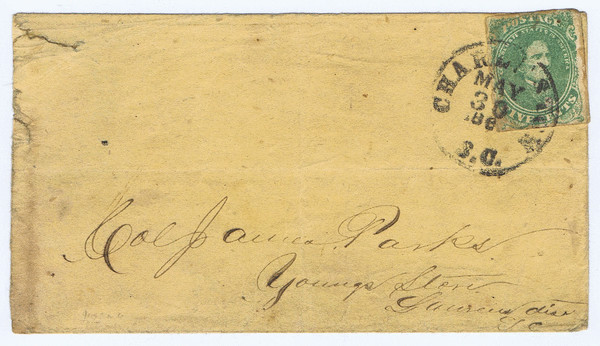 POSTAGE
CENTS
CHARLE
MAY
30
186
S.C.
Col James Parks
Youngs Store
Laurens dist
So